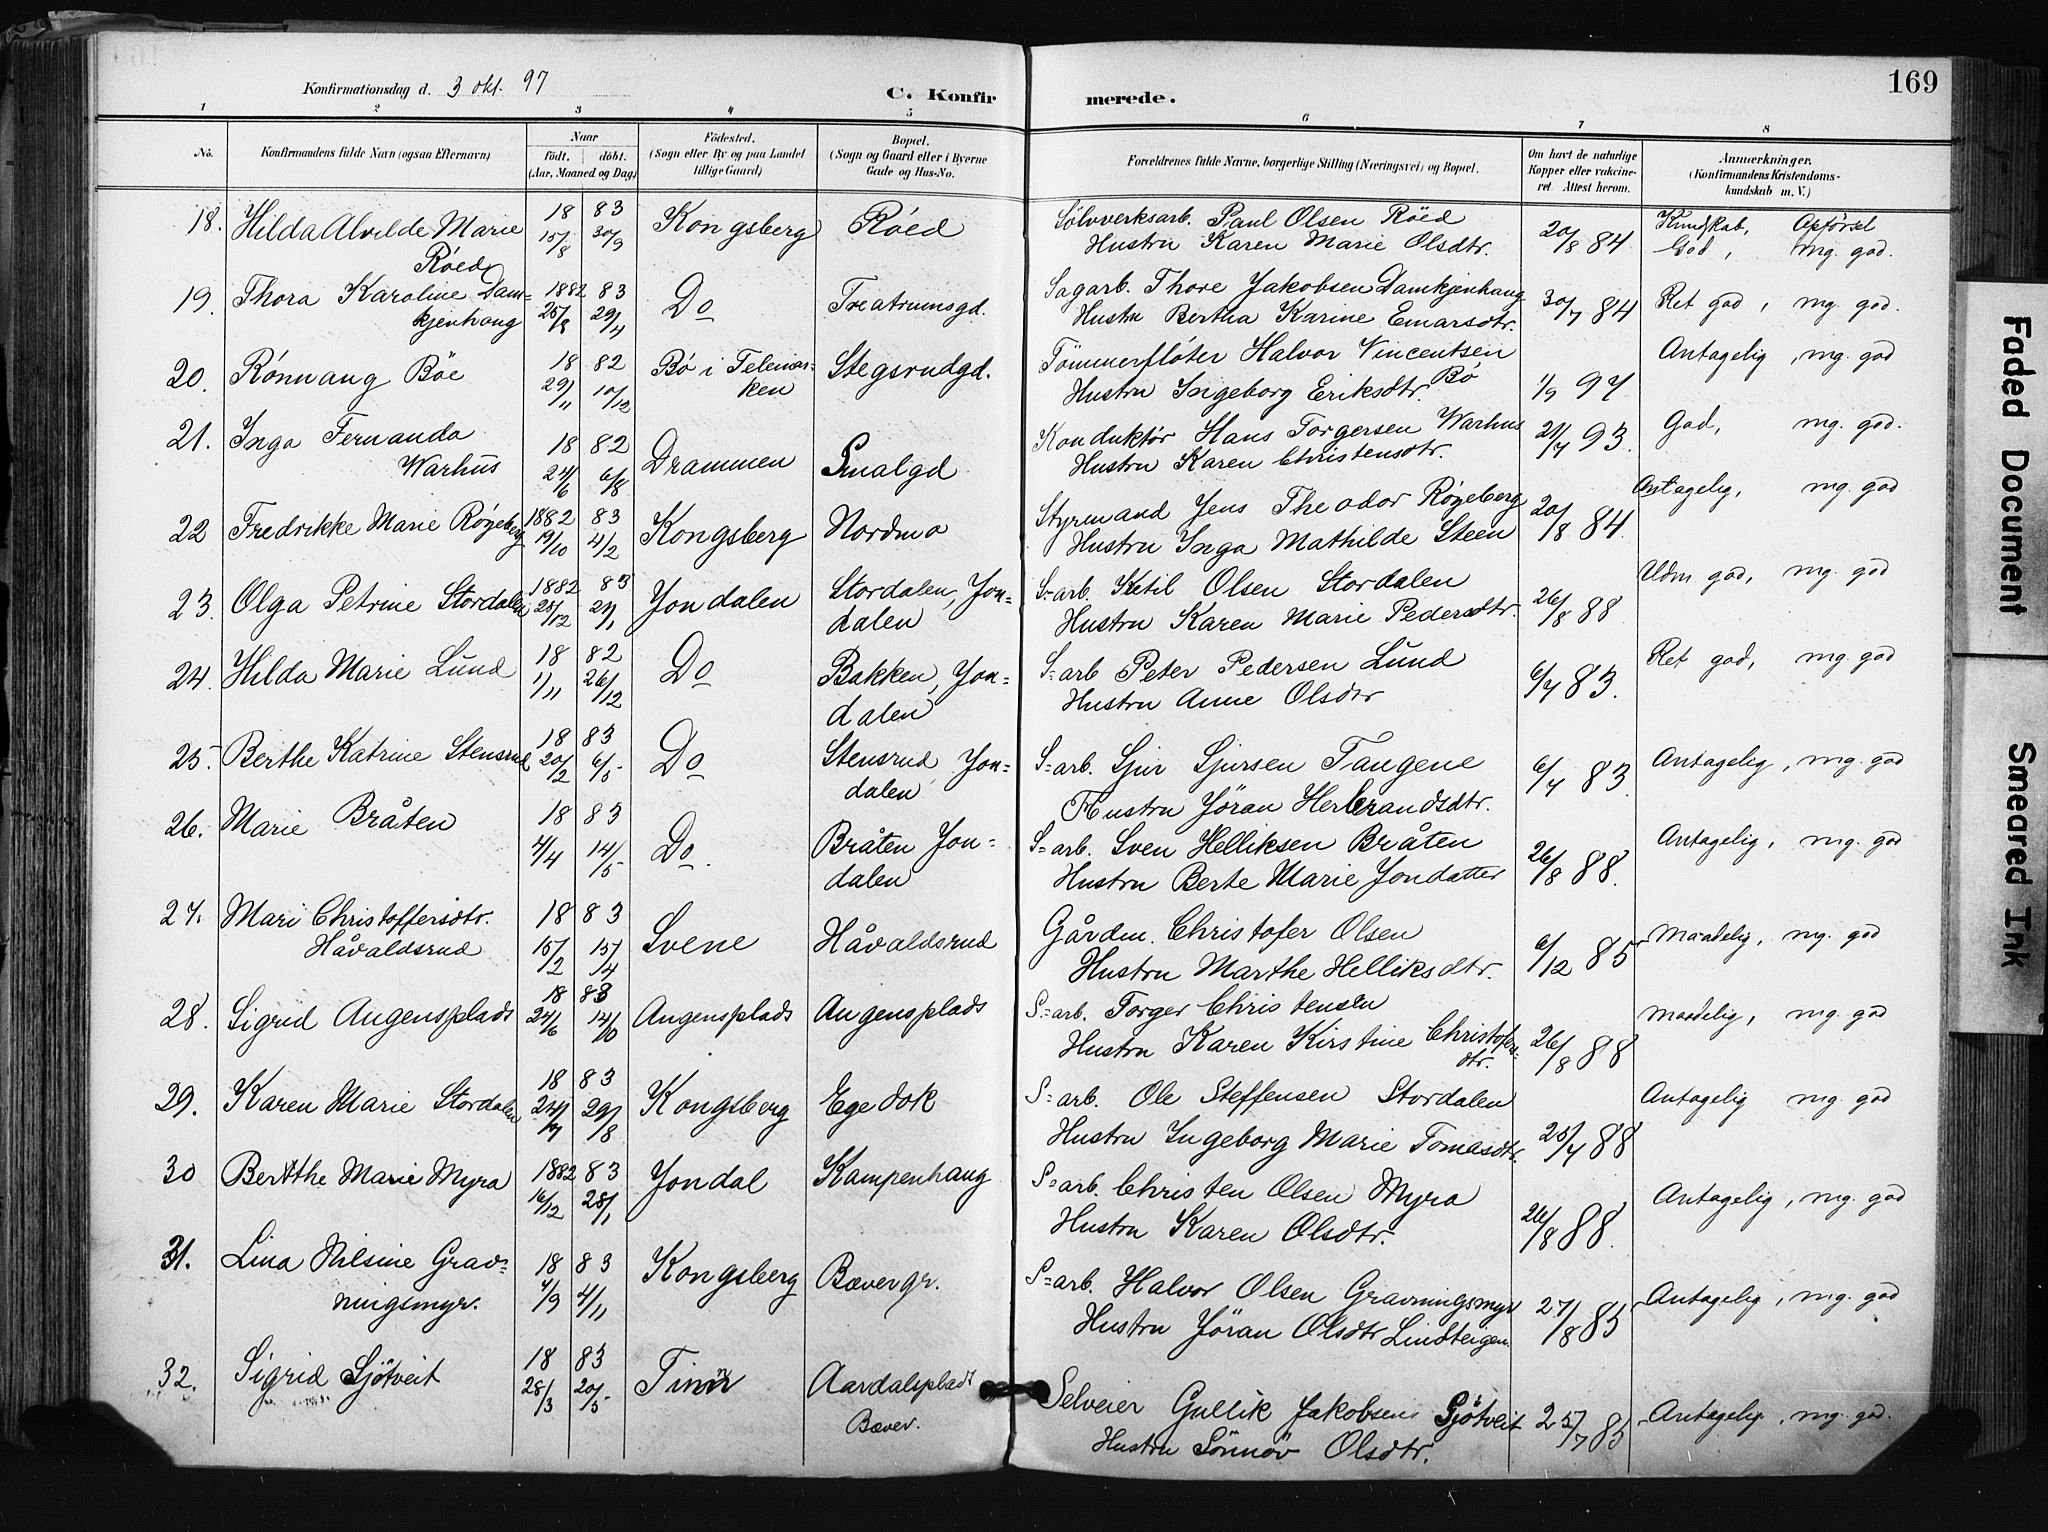 169
Konfirmationsdag d. 3 okt. 97
C. Konfirmerede.
1 2 3 4 5 6 7 8
No. Konfirmandens fulde Navn (ogsaa Efternavn) Naar født. døbt. (Aar, Maaned og Dag) Fødested. (Sogn eller By og paa Landet tillige Gaard) Bopæl. (Sogn og Gaard eller i Byerne Gade og Hus-No. Forældrenes fulde Navne, borgerlige Stilling (Næringsvei) og Bopæl. Om havt de naturlige Kopper eller vaccineret. Attest herom. Anmærkninger. (Konfirmandens Kristendomskundskab m. V.)
18. Hilda Alvilde Marie 18 83 Kongsberg Røed Sølvverksarb. Paul Olsen Røed 20/8 84 Kundskab, Opførsel
Røed 15/8 30/9 Hustru Karen Marie Olsdtr. God, mg. god.
19. Thora Karoline Dam- 1882 83 Do Treatrumsgd. Sagarb. Thore Jakobsen Damkjenhaug 30/7 84 Ret god, mg. god.
kjenhaug 25/8 29/4 Hustru Bertha Karine Emarsdtr.
20. Rønnaug Bøe 18 82 Bø i Telemar- Stegsrudgd. Tømmerfløter Halvor Vincentsen Antagelig, mg. god
29/11 10/12 ken Hustru Ingeborg Eriksdtr. Bø 1/9 97
21. Inga Fernanda 18 82 Drammen Smalgd Konduktør Hans Torgersen Warhus 21/7 93. God, mg. god.
Warhus 24/6 6/8 Hustru Karen Christensdtr.
22 Fredrikke Marie Røyeberg 1882 83 Kongsberg Nordmo Styrmand Jens Theodor Røyeberg 20/8 84. Antagelig, mg. god
19/10 4/2 Hustru Inga Mathilde Steen
23. Olga Petrine Stordalen 1882 83 Jondalen Stordalen, Jon- S=arb. Ketil Olsen Stordalen 26/8 88 Udm god, mg. god
25/12 21/1 dalen Hustru Karen Marie Pedersdtr.
24. Hilda Marie Lund 18 82 Do Bakken, Jon- S=arb Peter Pedersen Lund 6/7 83. Ret god, mg. god
1/11 26/12 dalen Hustru Anne Olsdtr
25. Berthe Katrine Stensrud 18 83 Do Stensrud, Jon- S=arb. Sjur Sjursen Tangene 6/7 83. Antagelig, mg. god
20/2 6/5 dalen Hustru Jøran Herbrandsdtr.
26. Marie Bråten 18 83 Do. Bråten Jon- S=arb. Sven Helliksen Bråten 26/8 88. Antagelig, mg. god
4/4 14/5 dalen Hustru Berte Marie Jondatter
27. Mari Christoffersdtr. 18 83 Svene Håvaldsrud Gårdm. Christofer Olsen 6/12 85 Maadelig, mg. god
Håvaldsrud 15/2 15/4 Hustru Marthe Helliksdtr.
28. Sigrid Augensplads 18 83 Augensplads Augensplads S=arb. Torger Christensen 26/8 88 Maadelig, mg. god
24/6 14/10 Hustru Karen Kirstine Christofers-
dtr.
29. Karen Marie Stordalen 18 83 Kongsberg Egedok S=arb. Ole Steffensen Stordalen 25/7 88 Antagelig mg. god
24/7 29/8 Hustru Ingeborg Marie Tomasdtr.
30 Berthe Marie Myra 1882 83 Jondal Kampenhaug S=arb. Christen Olsen Myra 26/8 88. Antagelig, mg. god
16/12 28/1 Hustru Karen Olsdtr.
31. Lina Nilsine Grav- 18 83 Kongsberg Bævergr. S=arb. Halvor Olsen Gravningsmyr 27/8 85 Antagelig, mg. god
ningsmyr. 4/9 4/11 Hustru Jøran Olsdtr Lindteigen
32. Sigrid Sjøtveit 18 83 Tinn Aardalspladt Selveier Gullik Jakobsen Sjøtveit 25/7 85 Antagelig, mg. god.
28/3 20/5 Bæver. Hustru Sønnøv Olsdtr.
Faded Document
Smeared Ink